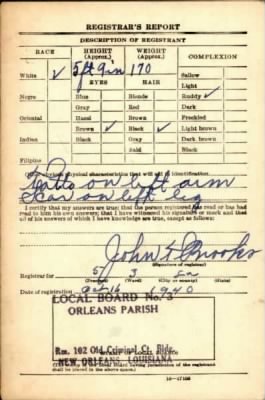 REGISTRAR'S REPORT
DESCRIPTION OF REGISTRANT
RACE HEIGHT (Approx.) WEIGHT (Approx.) COMPLEXION
White ✓ 5ft 9in 170 Sallow
EYES HAIR Light
Negro Blue Blonde Ruddy ✓
Gray Red Dark
Oriental Hazel Brown Freckled
Brown ✓ Black ✓ Light brown
Indian Black Gray Dark brown
Bald Black
Filipino
Other obvious physical characteristics that will aid in identification
Tatto on left arm
Scar on left leg
I certify that my answers are true; that the person registered has read or has had
read to him his own answers; that I have witnessed his signature or mark and that
all of his answers of which I have knowledge are true, except as follows:
John E Brooks
(Signature of registrar)
Registrar for 5 3 La
(Precinct) (Ward) (City or county) (State)
Date of registration Oct 16 1940
LOCAL BOARD No. 3
ORLEANS PARISH
Rm. 102 Old Criminal Ct. Bldg.
NEW ORLEANS, LOUISIANA
(The stamp of the Local Board having jurisdiction of the registrant
shall be placed in the above space.)